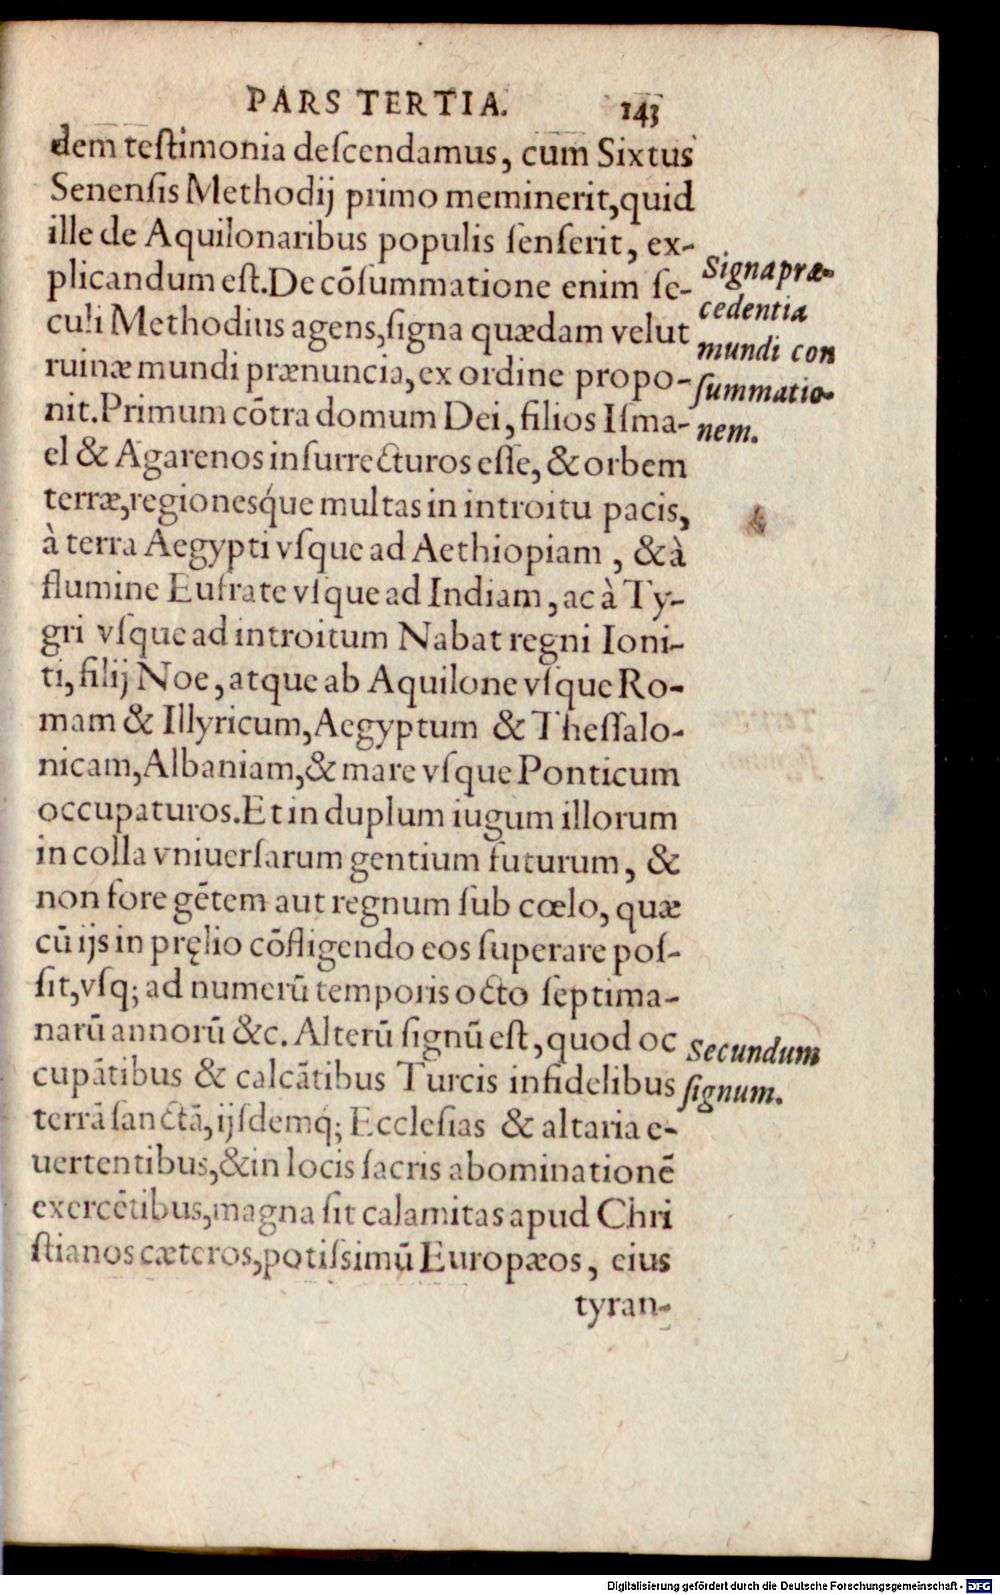 PARS TERTIA. 143
dem teſtimonia deſcendamus, cum Sixtus
Senenſis Methodij primo meminerit,quid
ille de Aquilonaribus populis ſenſerit, ex-
plicandum eſt.De cõſummatione enim ſe-
culi Methodius agens,ſigna quædam velut
ruinæ mundi prænuncia,ex ordine propo-
nit.Primum cõtra domum Dei, filios Iſma-
el & Agarenos inſurrecturos eſſe, & orbem
terræ,regionesq́ue multas in introitu pacis,
à terra Aegypti vſque ad Aethiopiam , & à
flumine Eufrate vſque ad Indiam, ac à Ty-
gri vſque ad introitum Nabat regni Ioni-
ti, filij Noe, atque ab Aquilone vſque Ro-
mam & Illyricum,Aegyptum & Theſſalo-
nicam,Albaniam,& mare vſque Ponticum
occupaturos.Et in duplum iugum illorum
in colla vniuerſarum gentium futurum, &
non fore gẽtem aut regnum ſub cœlo, quæ
cũ ijs in pręlio cõfligendo eos ſuperare poſ-
ſit,vſq; ad numerũ temporis octo ſeptima-
narũ annorũ &c. Alterũ ſignũ eſt, quod oc
cupãtibus & calcãtibus Turcis infidelibus
terrã ſanctã, ijſdemq́; Eccleſias & altaria e-
uertentibus,& in locis ſacris abominationẽ
exercẽtibus,magna ſit calamitas apud Chri
ſtianos cæteros,potiſsimũ Europæos, eius
tyran-
Signa præ-
cedentia
mundi con
ſummatio-
nem.
Secundum
ſignum.
Digitalisierung gefördert durch die Deutsche Forschungsgemeinschaft - DFG